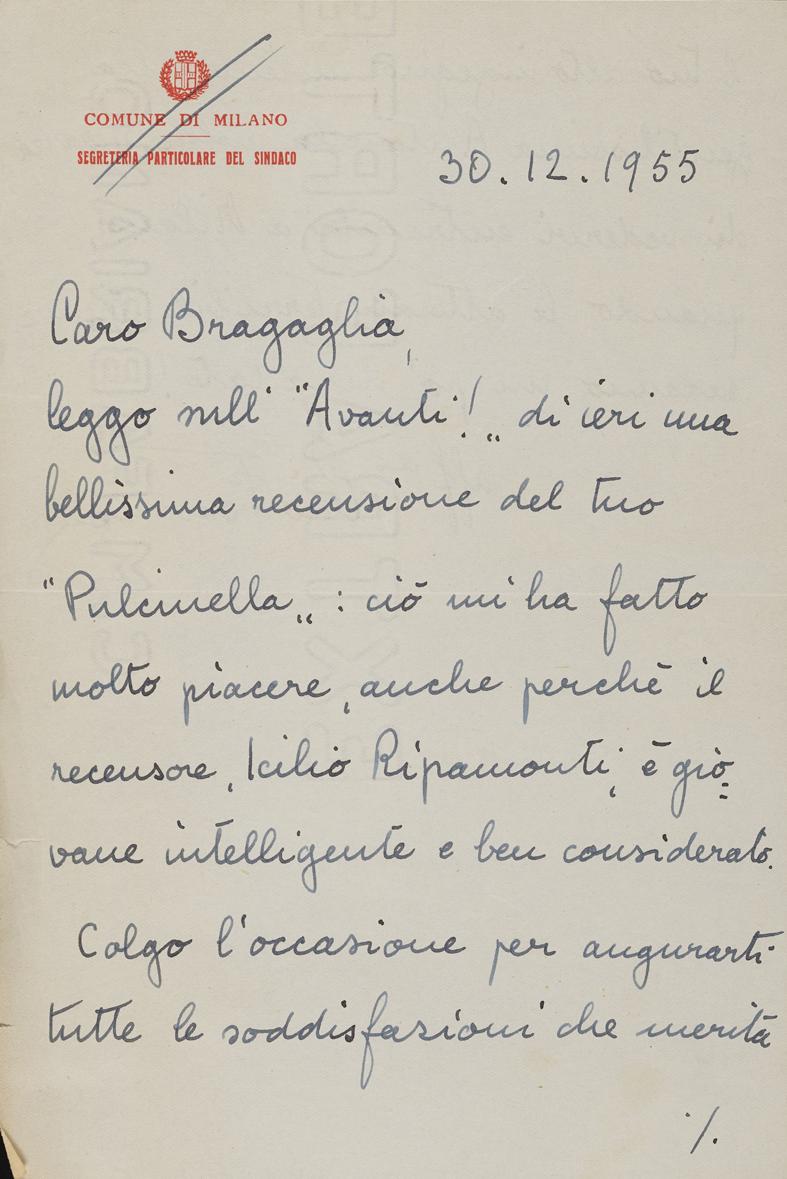 COMUNE DI MILANO
SEGRETERIA PARTICOLARE DEL SINDACO
30.12.1955
Caro Bragaglia,
leggo sull' "Avanti!„ di ieri una
bellissima recensione del tuo
"Pulcinella„ : ciò mi ha fatto
molto piacere, anche perchè il
recensore, Icilio Ripamonti, è gio=
vane intelligente e ben considerato.
Colgo l'occasione per augurarti
tutte le soddisfazioni che merita
./.